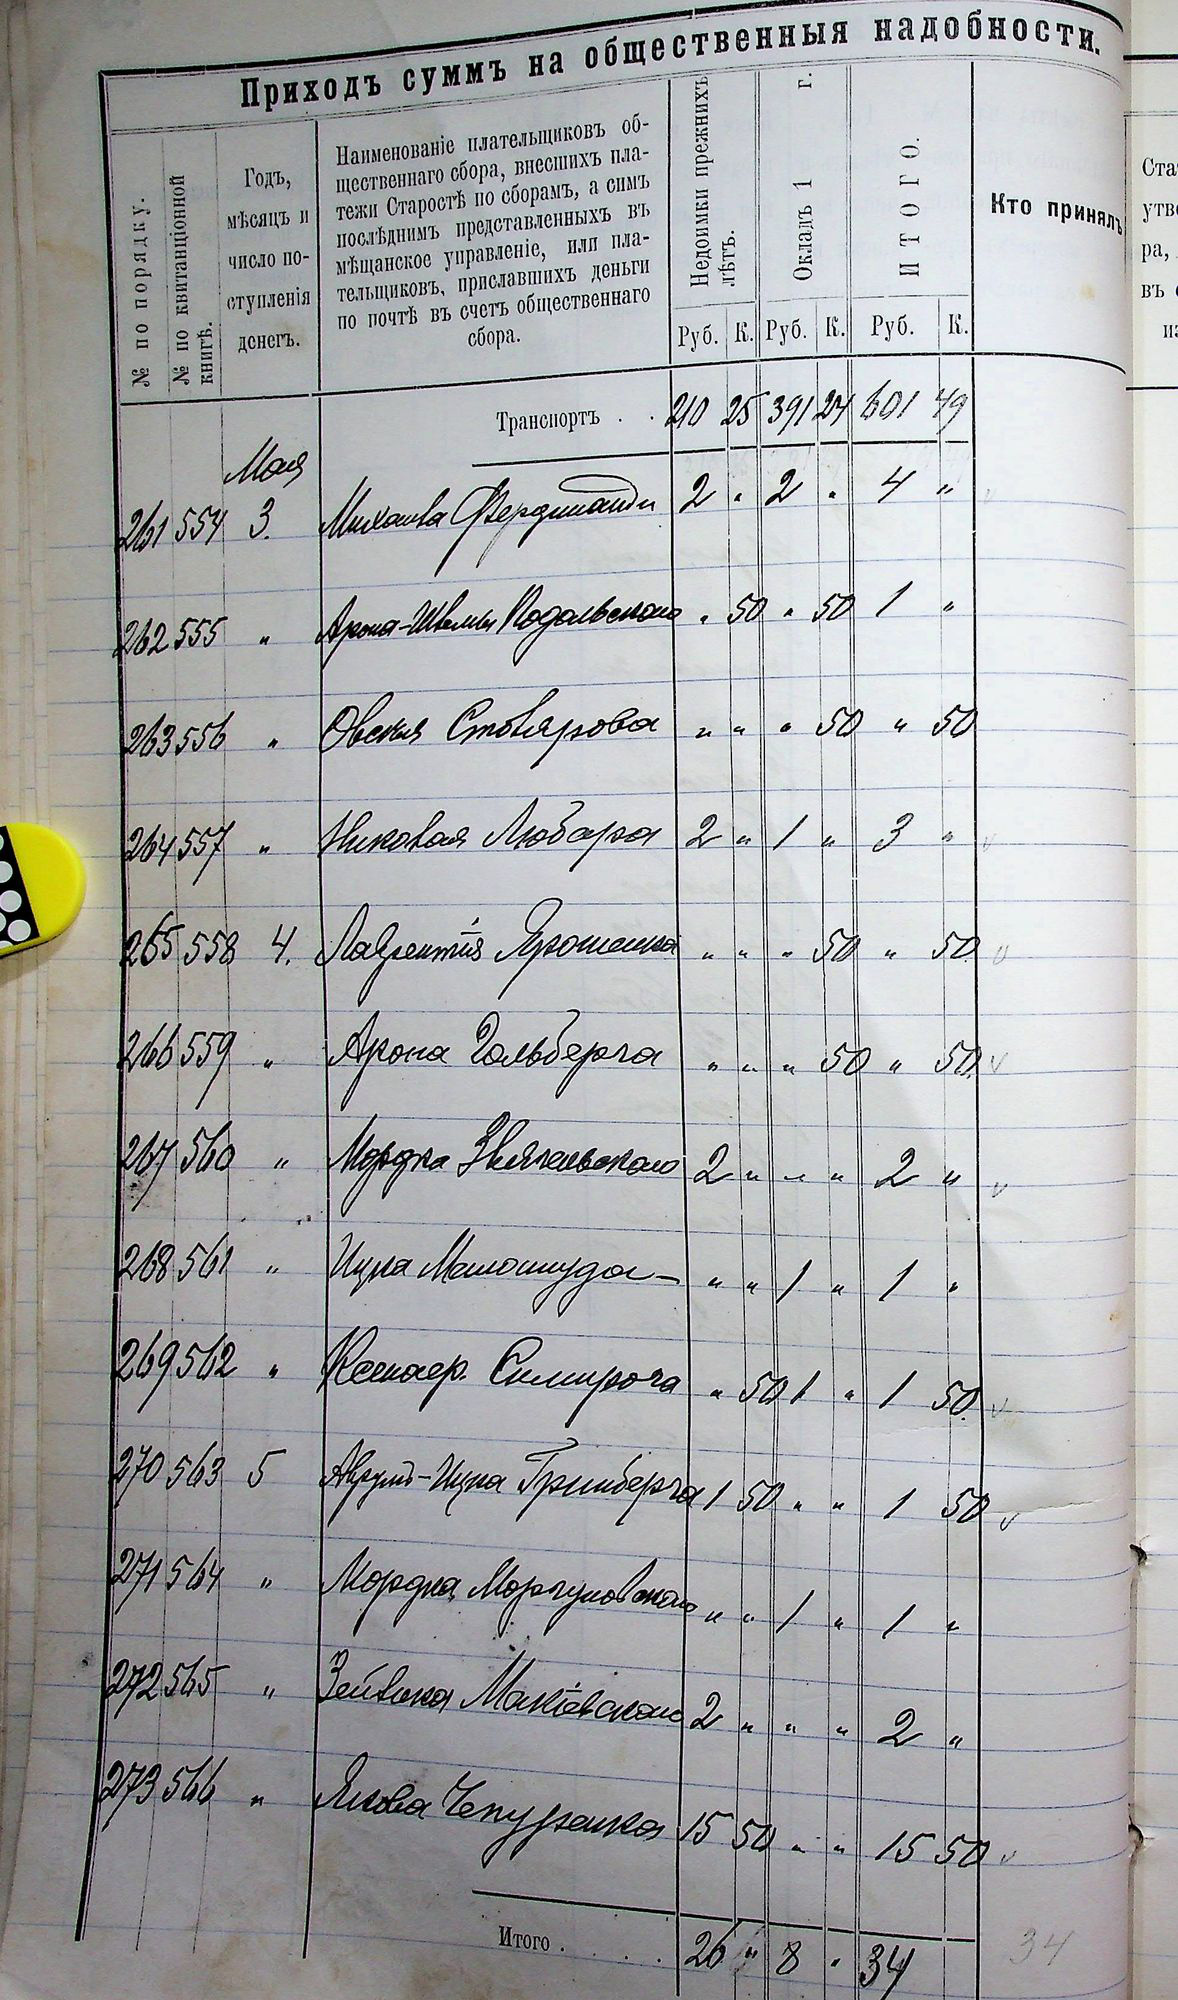 Приходъ суммъ на общественныя надобности.
№ по порядку.
№ по квитанціонной
книгѣ.
Годъ,
мѣсяцъ и
число по-
ступленія
денегъ.
Наименованіе плательщиковъ об-
щественнаго сбора, внесшихъ пла-
тежи Старостѣ по сборамъ, а симъ
послѣднимъ представленныхъ въ
мѣщанское управленіе, или пла-
тельщиковъ, приславшихъ деньги
по почтѣ въ счетъ общественнаго
сбора.
Недоимки прежнихъ
лѣтъ.
Окладъ 1 г.
ИТОГО.
Кто принялъ
Руб. К. Руб. К. Руб. К.
Транспортъ . . 210 25 391 24 601 49
Мая
261 554 3. Михаила Фердинанди 2 " 2 " 4 "
262 555 " Арона- Подольскаго " 50 " 50 1 "
263 556 " Овсея Столярова " " " 50 " 50
264 557 " Николая Любара 2 " 1 " 3 "
265 558 4. Лаврентія Ярошенка " " " 50 " 50
266 559 " Арона Гольберга " " " 50 " 50
267 560 " Мордка Звягельскаго 2 " " " 2 "
268 561 " Ицка " " 1 " 1 "
269 562 " " 50 1 " 1 50
270 563 5 Аврумъ-Ицка Гринберга 1 50 " " 1 50
271 564 " Мордка Моргуновскаго " " 1 " 1 "
272 565 " Зейвика Макіевскаго 2 " " " 2 "
273 566 " Якова Чепуренка 15 50 " " 15 50
Итого . . . . 26 " 8 " 34
34
Ста
утве
ра,
въ